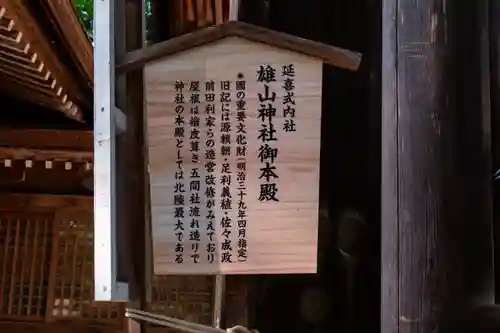 延喜式内社
雄山神社御本殿
◉國の重要文化財(明治三十九年四月指定)
旧記には源頼朝・足利義稙・佐々成政
前田利家らの造営改修がみえており
屋根は檜皮葺き五間社流れ造りで
神社の本殿としては北陸最大である